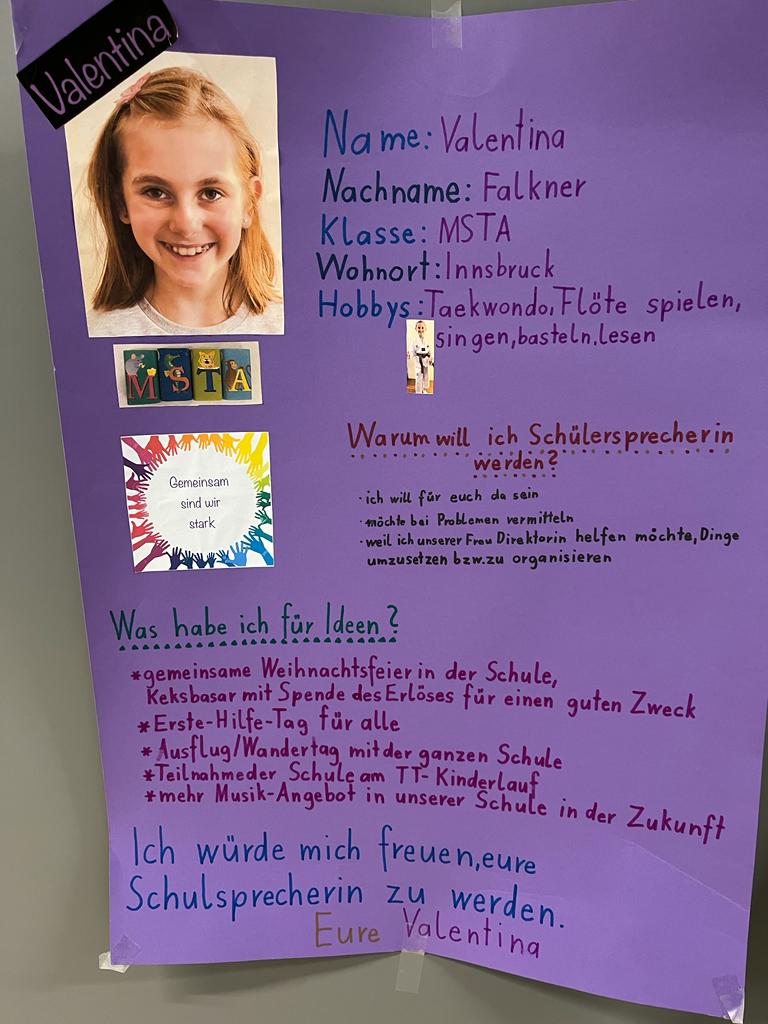 Valentina
Name: Valentina
Nachname: Falkner
Klasse: MSTA
Wohnort: Innsbruck
Hobbys: Taekwondo, Flöte spielen,
singen, basteln, lesen
MSTA
Gemeinsam
sind wir
stark
Warum will ich Schülersprecherin
werden?
· ich will für euch da sein
· möchte bei Problemen vermitteln
· weil ich unserer Frau Direktorin helfen möchte, Dinge
umzusetzen bzw. zu organisieren
Was habe ich für Ideen?
* gemeinsame Weihnachtsfeier in der Schule,
Keksbasar mit Spende des Erlöses für einen guten Zweck
* Erste-Hilfe-Tag für alle
* Ausflug/Wandertag mit der ganzen Schule
* Teilnahme der Schule am TT-Kinderlauf
* mehr Musik-Angebot in unserer Schule in der Zukunft
Ich würde mich freuen, eure
Schulsprecherin zu werden.
Eure Valentina